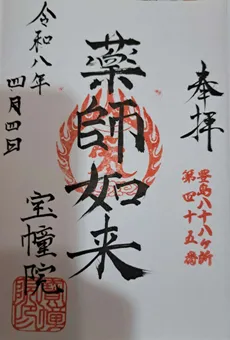 奉拝
豊島八十八ヶ所
第四十五番
薬師如来
宝幢院
令和八年
四月四日